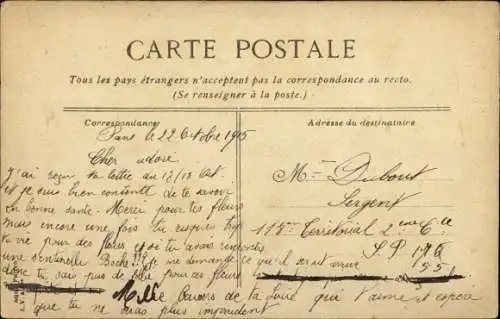 CARTE POSTALE
Tous les pays étrangers n'acceptent pas la correspondance au recto.
(Se renseigner à la poste.)
Correspondance
Adresse du destinataire
Paris le 22 Octobre 1915
Cher adoré
J'ai reçu ta lettre du 12/13 Oct
et je suis bien contente de te savoir
en bonne santé. Merci pour tes fleurs
mais encore une fois tu risques trop
ta vie pour des fleurs et si tu avais rencontré
une sentinelle Boche je me demande ce qu'il serait arrivé
donc ne vais pas de pour ces fleurs
Mille Baisers de ta qui t'aime et espère
que tu ne seras plus imprudent
Mr Dubout
Sergent
Territorial 2eme Cie
S. P
155